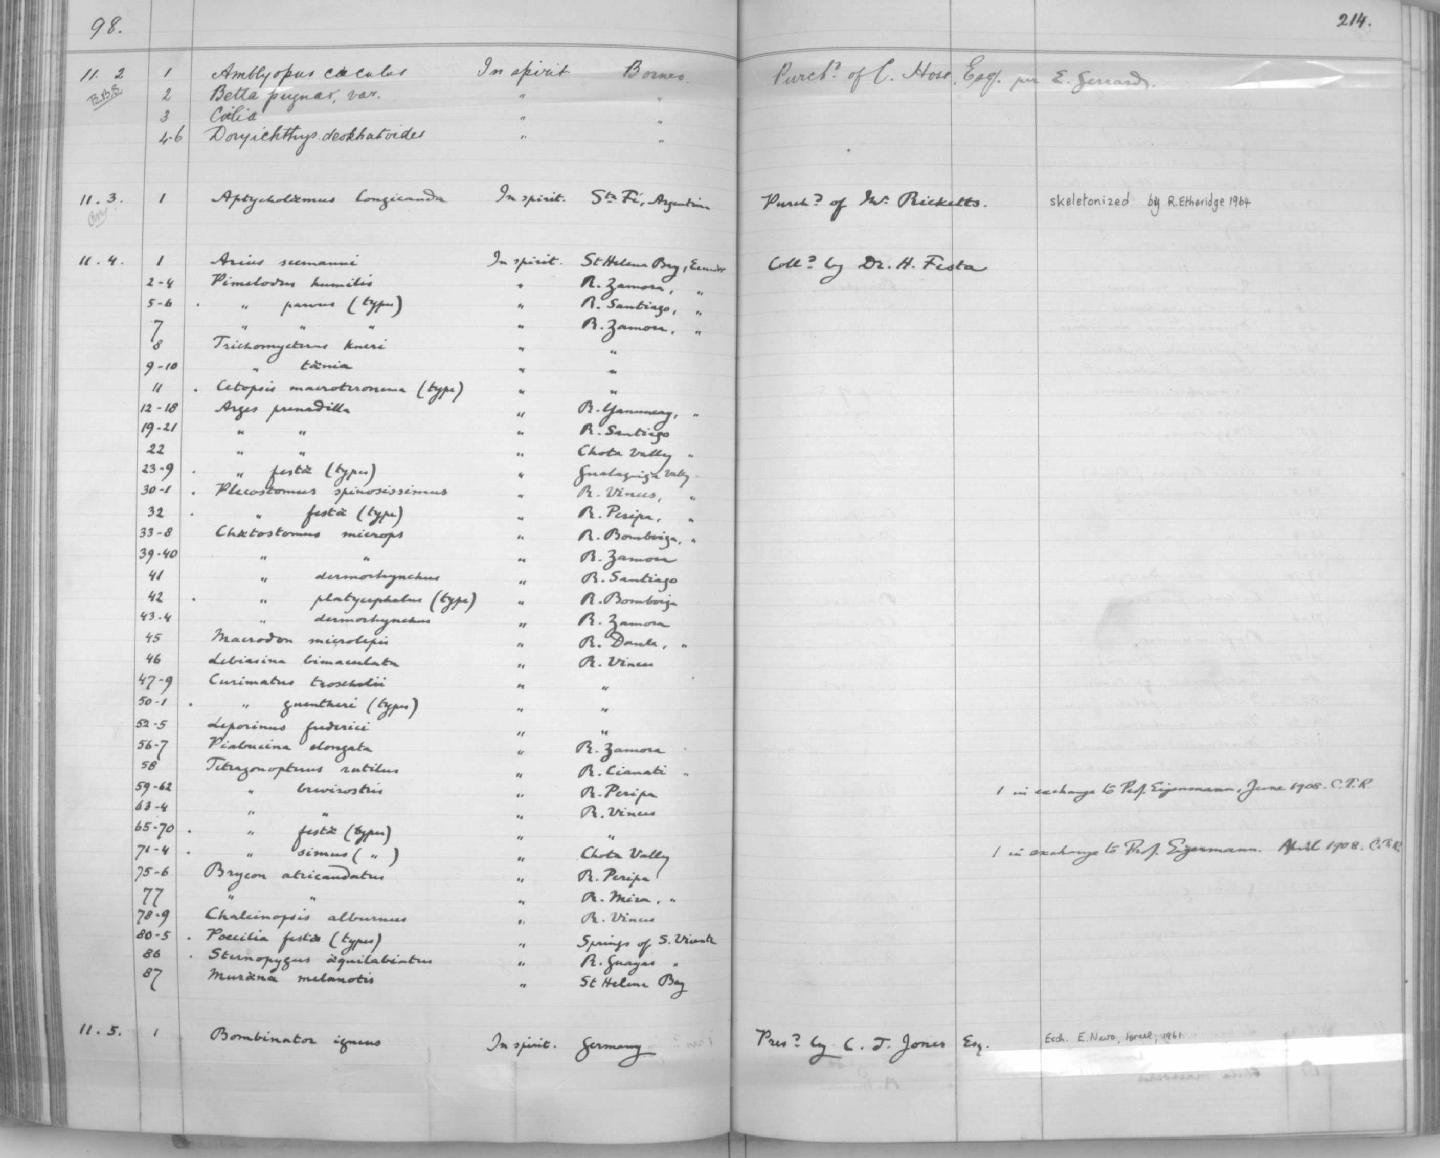 98.
214.
11. 2 1 Amblyopus cæculus In spirit Borneo Purchd of C. Hose, Esq. per E. Gerrard.
2 Betta pugnax, var. " "
3 Coilia " "
4-6 Doryichthys deokhatoides " "
11. 3. 1 Aptycholæmus longicauda In spirit. Sta Fé, Argentina Purchd of Mr. Ricketts. skeletonized by R. Etheridge 1964
11. 4. 1 Arius seemanni In spirit. St Helena Bay, Ecuador Colld by Dr. H. Festa
2-4 Pimelodus humilis " R. Zamora, "
5-6 . " parvus (types) " R. Santiago, "
7 " " " " R. Zamora, "
8 Trichomycterus kneri " "
9-10 " tænia " "
11 . Cetopsis macroteronema (type) " "
12-18 Arges prenadilla " R. "
19-21 " " " R. Santiago
22 " " " Chota Valley "
23-9 . " festæ (types) " Gualaquiza Valley
30-1 . Plecostomus spinosissimus " R. Vinces, "
32 . " festæ (type) " R. Peripa, "
33-8 Chætostomus microps " R. Bomboiza, "
39-40 " " " R. Zamora
41 " dermorhynchus " R. Santiago
42 . " platycephalus (type) " R. Bomboiza
43-4 " dermorhynchus " R. Zamora
45 Macrodon microlepis " R. Daule, "
46 Lebiasina bimaculata " R. Vinces
47-9 Curimatus troschelii " "
50-1 . " guentheri (types) " "
52-5 Leporinus frederici " "
56-7 Piabucina elongata " R. Zamora
58 Tetragonopterus rutilus " R. Cianati "
59-62 " brevirostris " R. Peripa 1 in exchange to Prof. Eigenmann, June 1908. C.T.R.
63-4 " " " R. Vinces
65-70 . " festæ (types) " "
71-4 . " simus ( " ) " Chota Valley 1 in exchange to Prof. Eigenmann. April 1908. C.T.R.
75-6 Brycon atricaudatus " R. Peripa
77 " " " R. Mira, "
78-9 Chalcinopsis alburnus " R. Vinces
80-5 . Poecilia festæ (types) " Springs of S. Vicente
86 . Sternopygus æquilabiatus " R. Guayas "
87 Muræna melanotis " St Helena Bay
11. 5. 1 Bombinator igneus In spirit. Germany Presd by C. J. Jones Esq. Exch. E. Nevo, Israel, 1961